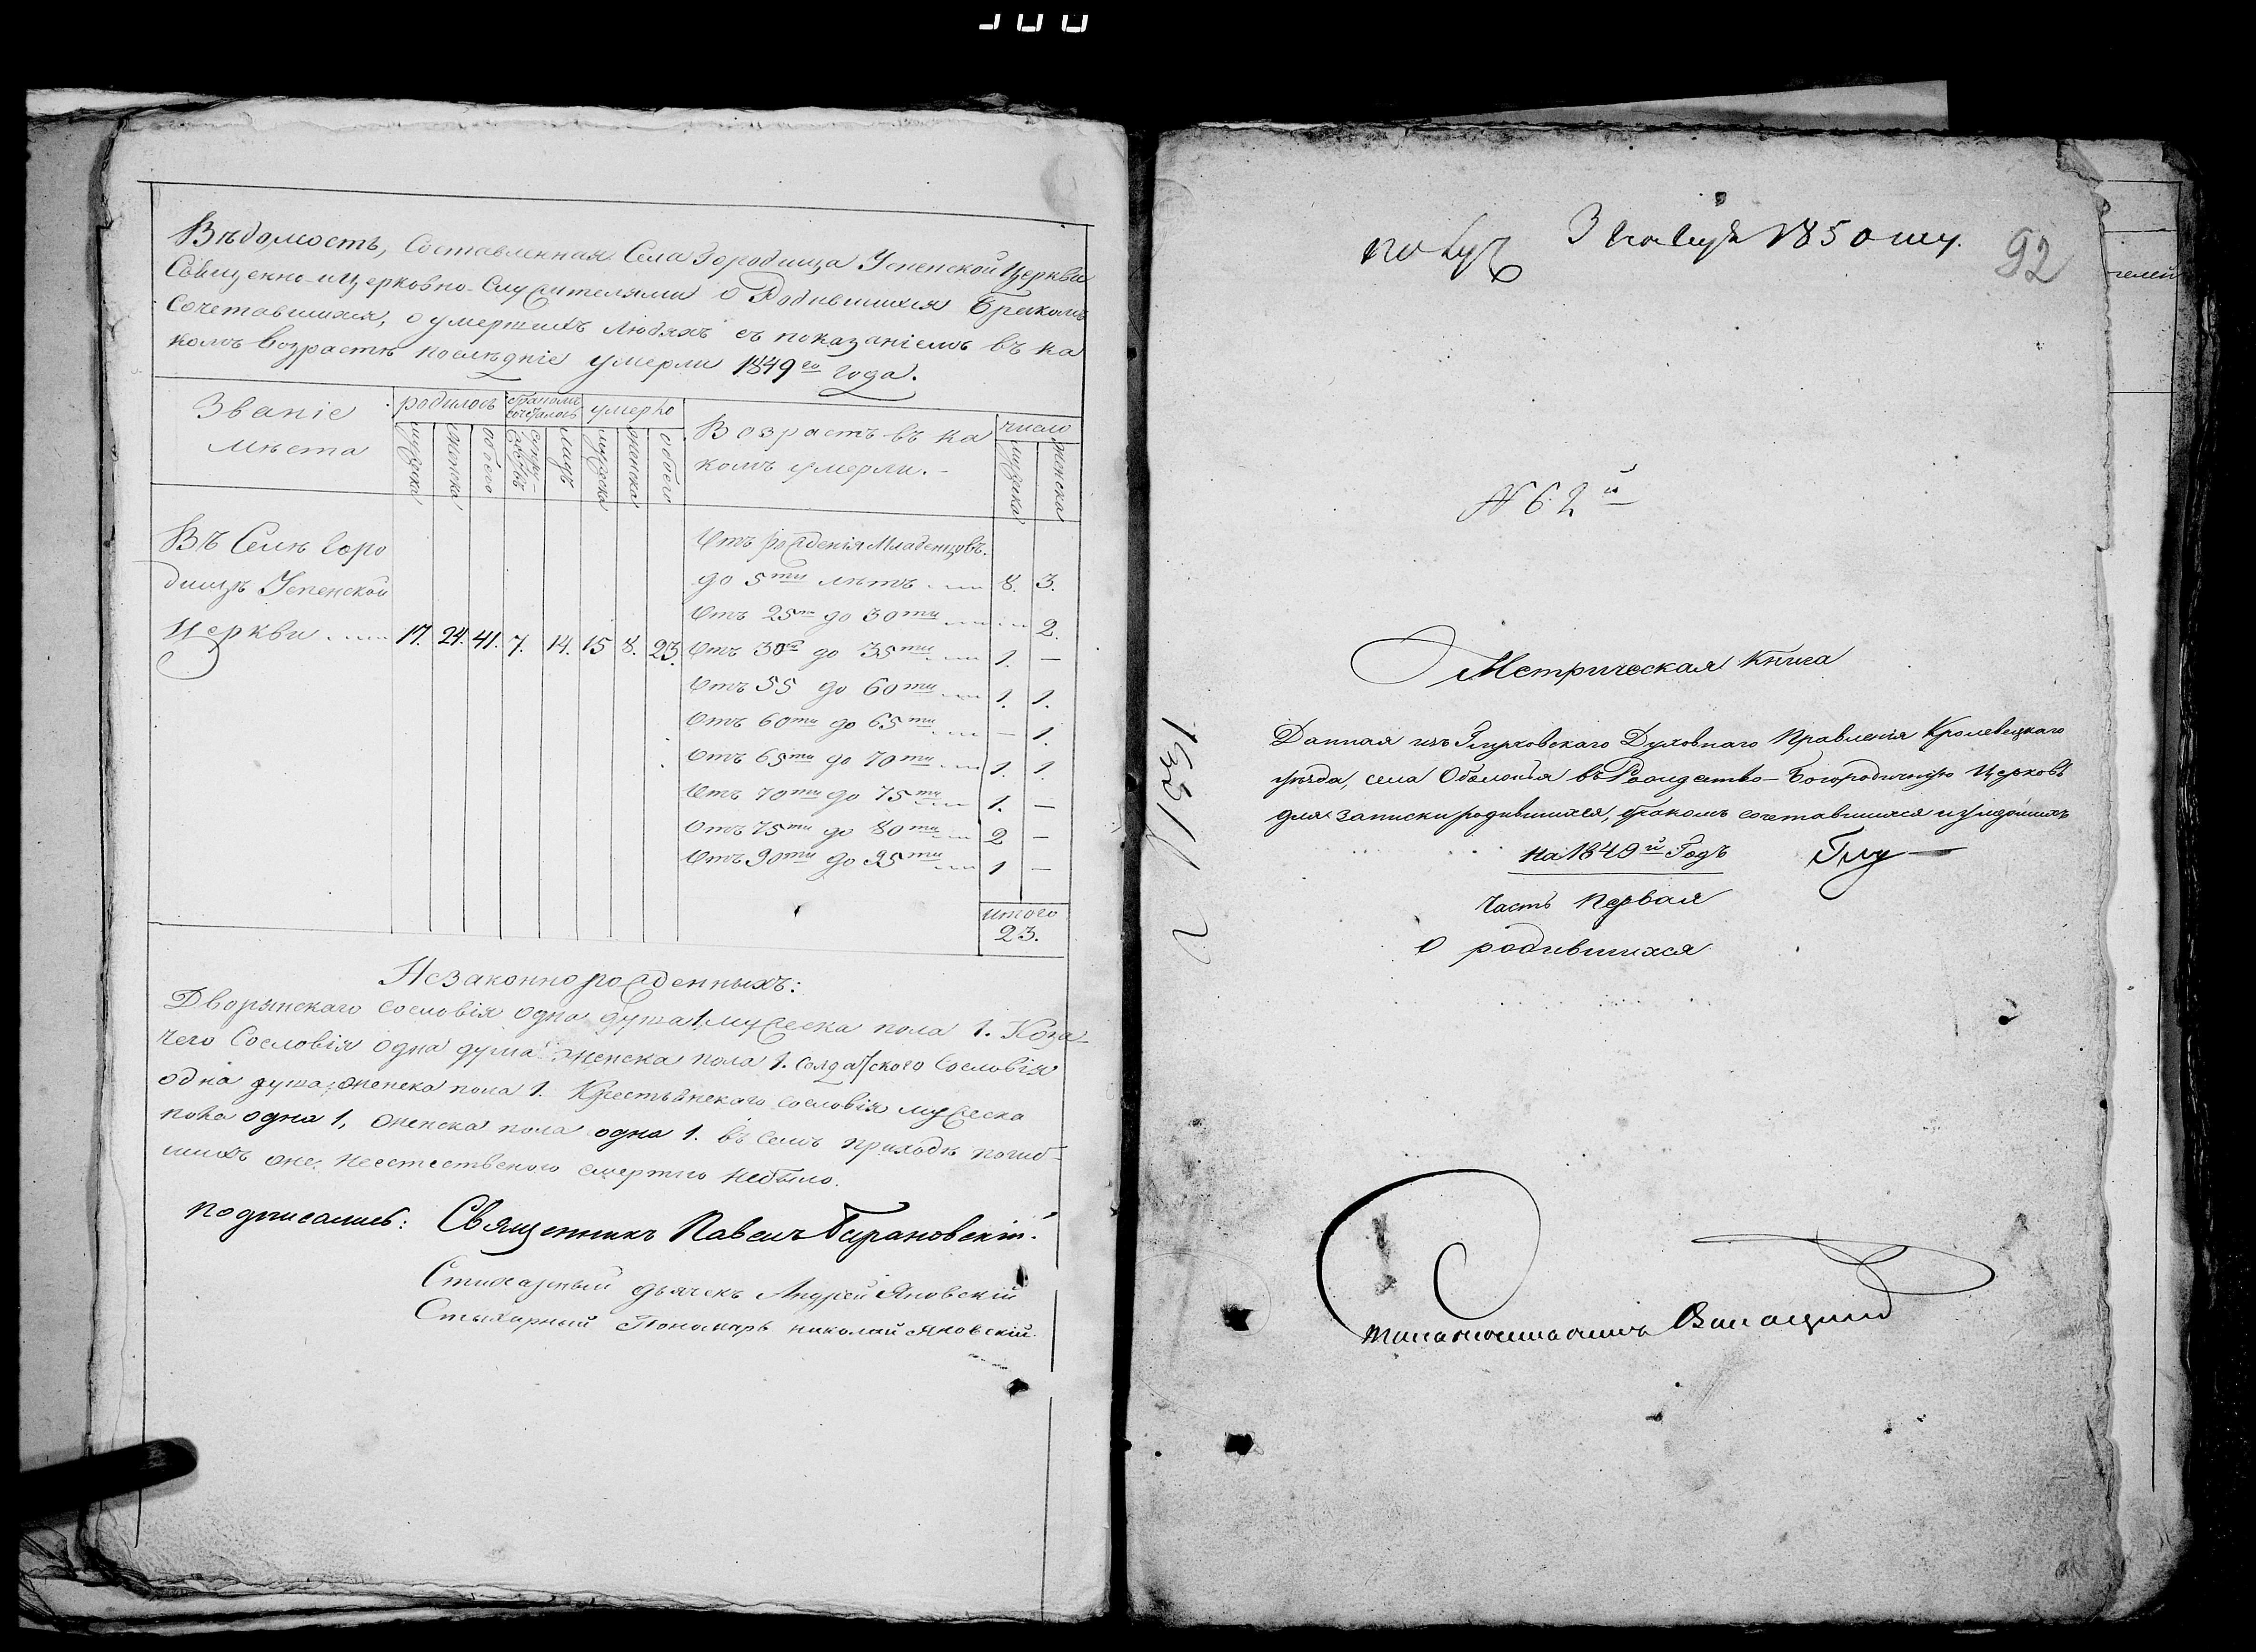 Вѣдомость, Составленная Села Городища Успенской Церкви
Священно-и Церковно-Служителями о Родившихся Бракомъ
Сочетавшихся, о умершихъ Людяхъ съ показаніемъ въ ка
комъ Возрастѣ послѣдніе умерли 1849го года.
Званіе мѣста
родилось
бракомъ сочеталось
умерло
Возрастъ въ ка
комъ умерли.-
число
мужска
женска
обоего
супру-
жествъ
лицъ
мужска
женска
обоего
мужска
женска
Въ Селѣ Горо
дищѣ Успенской
Церкви 17. 24. 41. 7. 14. 15 8. 23.
Отъ рожденія Младенцовъ.
до 5ти лѣтъ 8. 3.
Отъ 25ти до 30ти 2.
Отъ 30 до 35ти 1. —
Отъ 55 до 60ти 1. 1.
Отъ 60ти до 65ти — 1.
Отъ 65ти до 70ти 1. 1.
Отъ 70ти до 75ти 1. —
Отъ 75ти до 80ти 2 —
Отъ 90ти до 95ти 1 —
итого
23.
Незаконнорожденныхъ:
Дворянскаго сословія одна душа мужеска пола 1. Коза-
чего Сословія одна душа женска пола 1. Солдатского Сословія
одна душа женска пола 1. Крестьянскаго сословія мужеска
пола одна 1, женска пола одна 1. въ семъ приходѣ погиб-
шихъ же неестественою смертію небыло.
подписались: Священникъ Павелъ Тарановскій.
Стихарный дьячекъ Андрей Яновскій
Стихарный Пономарь николай яновскій.
1850
92
№ 62й
Метрическая Книга
Данная изъ Глуховскаго Духовнаго Правленія Кролевецкаго
уѣзда, села Оболонья въ Рождество-Богородичную Церковь
для записки родившихся, бракомъ сочетавшихся и умершихъ
на 1849й Годъ
Часть Первая
О родившихся